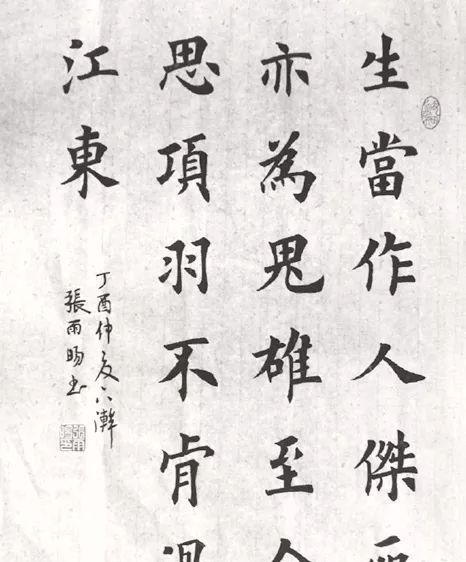 生當作人傑
亦為鬼雄至今
思項羽不肯過
江東
丁酉仲夏
張雨暘書